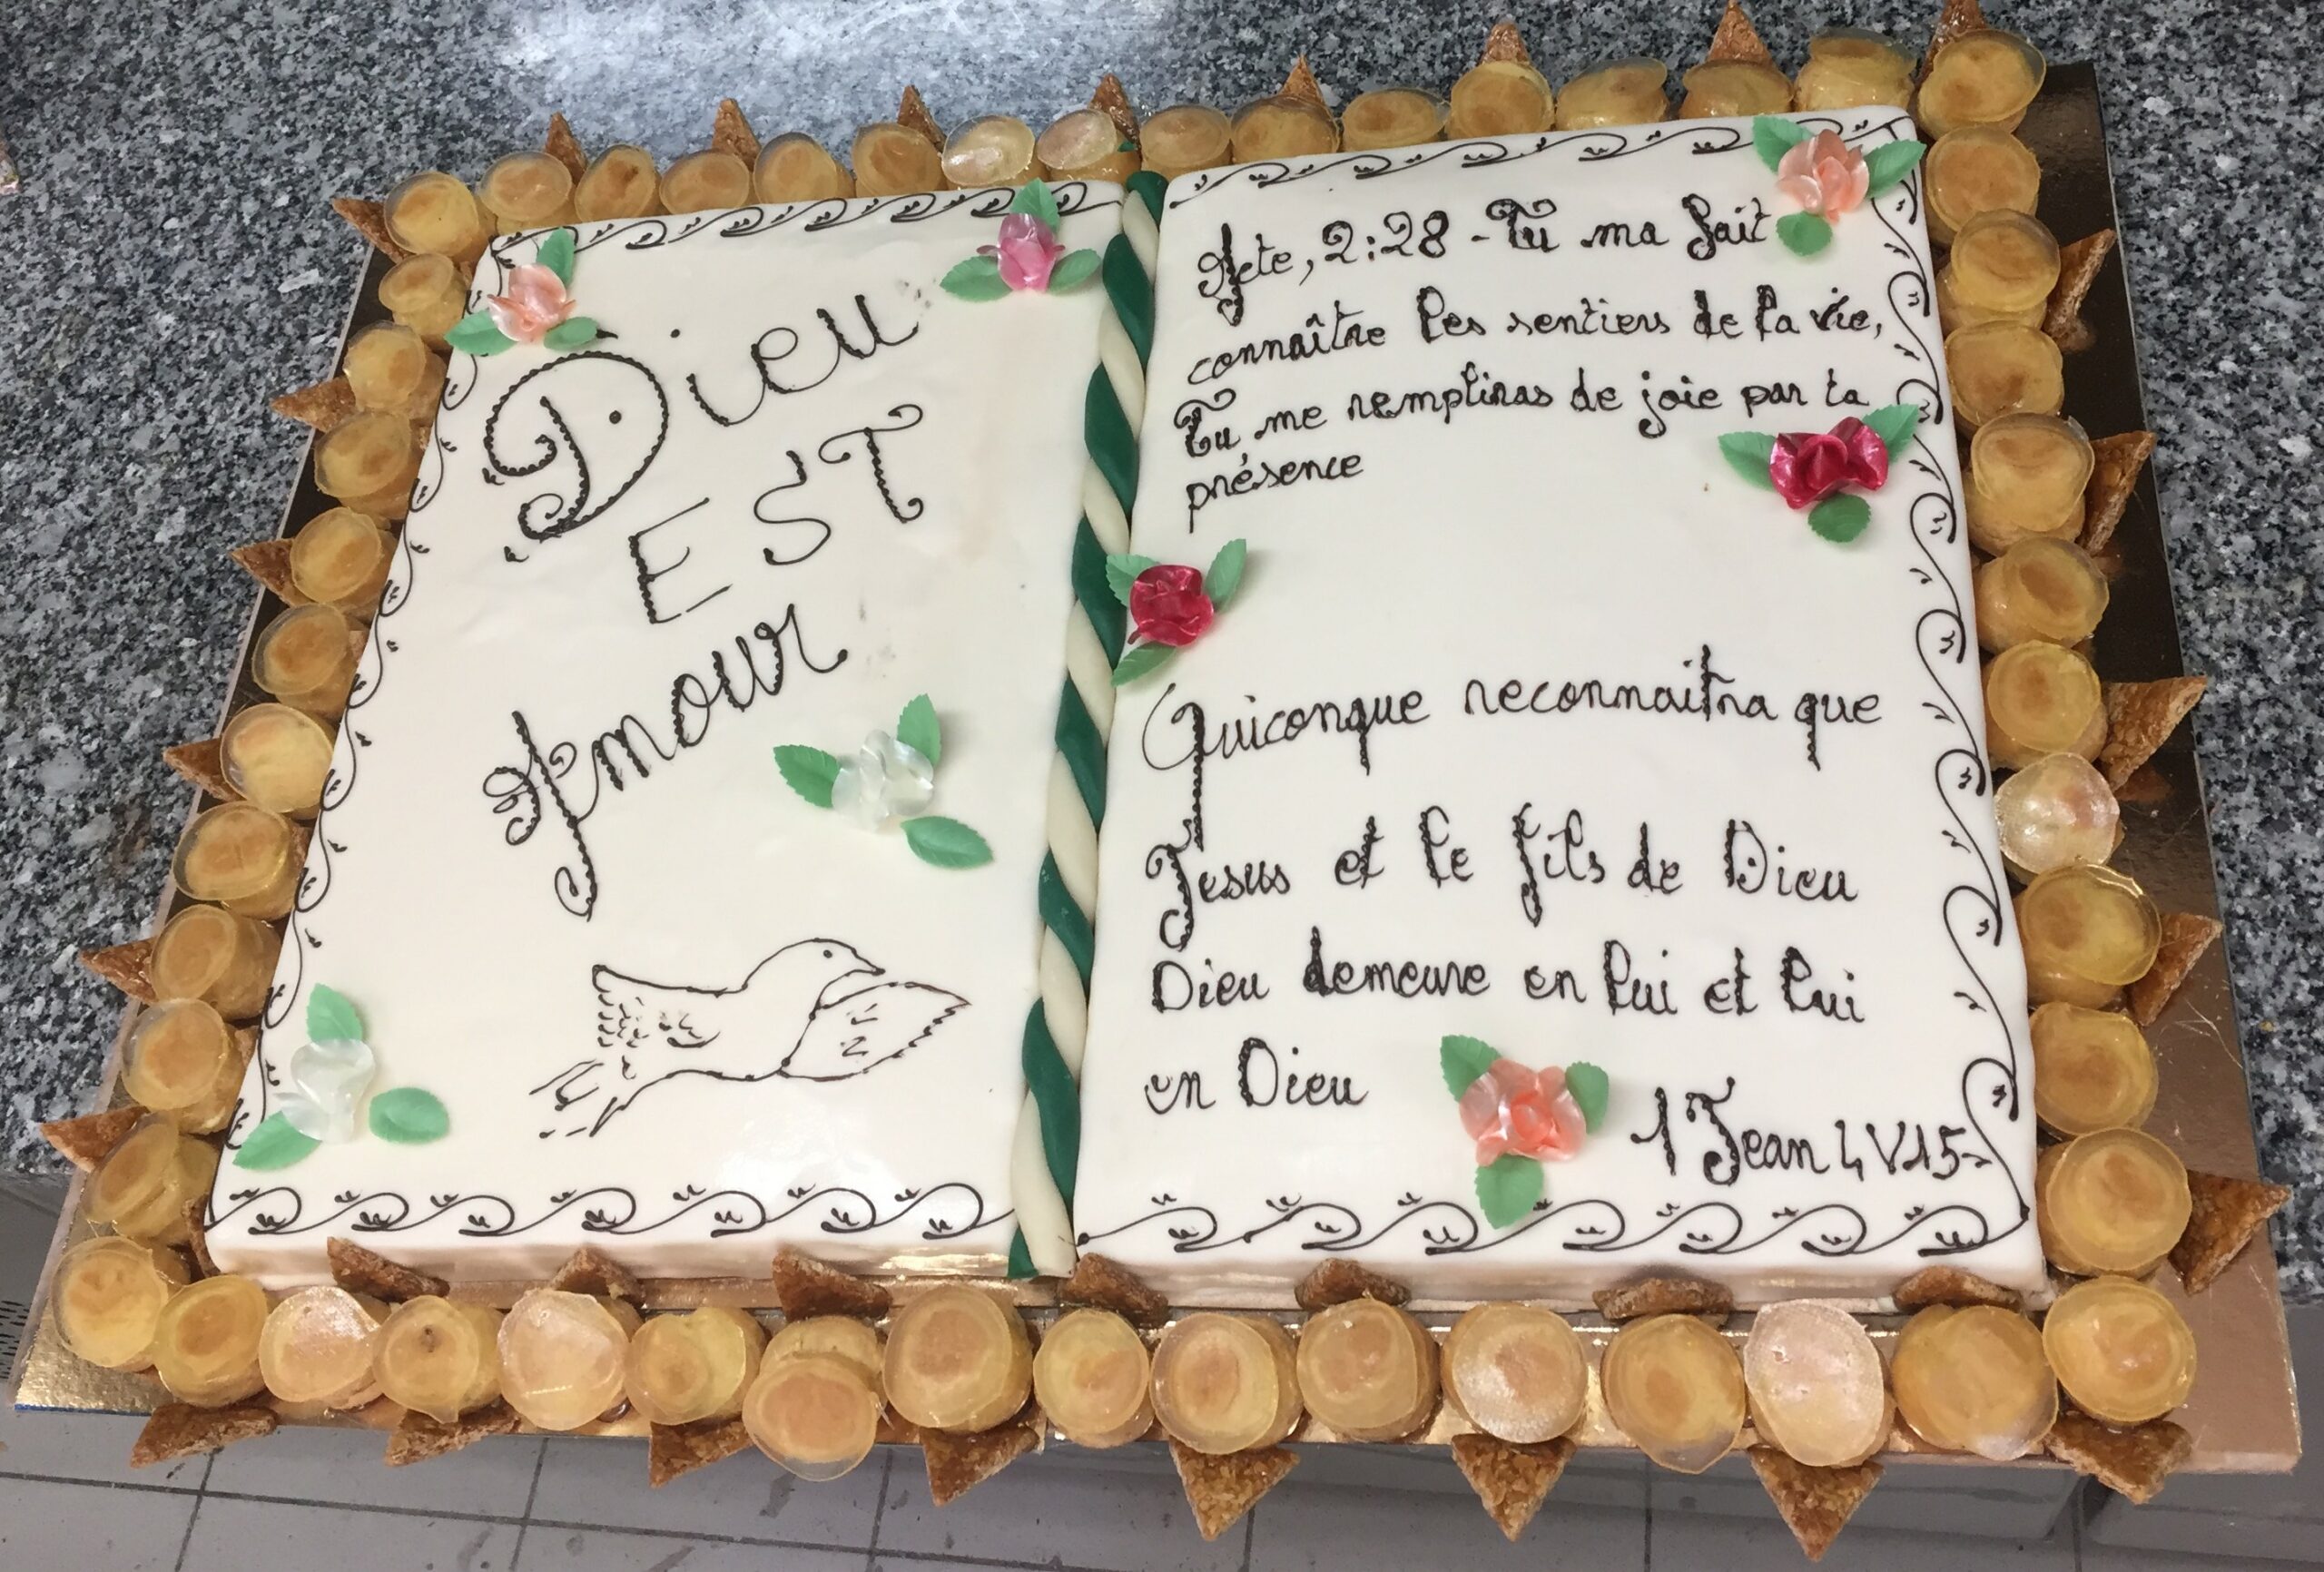 Dieu
EST
Amour
Acte, 2:28 - Tu ma fait
connaître les sentiers de la vie,
Tu me rempliras de joie par ta
présence
Quiconque reconnaitra que
Jesus et le fils de Dieu
Dieu demeure en lui et lui
en Dieu
1 Jean 4 V15